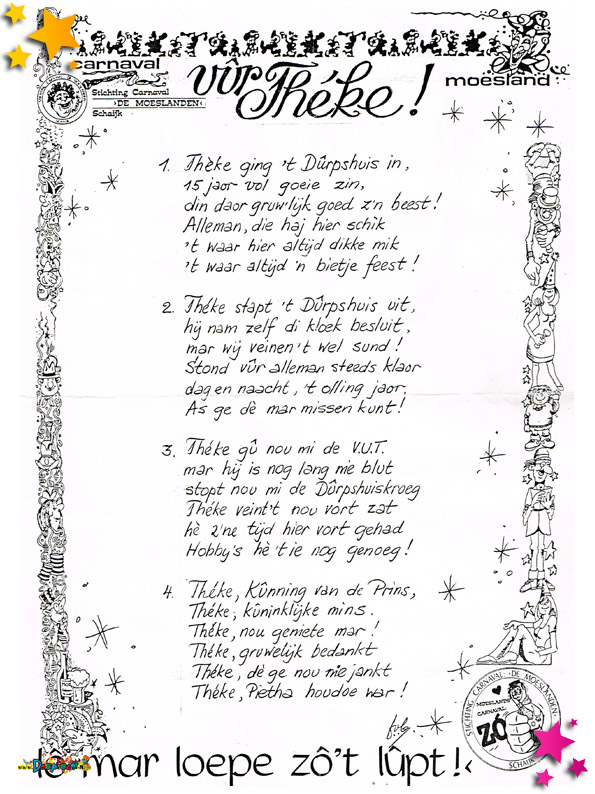 carnaval
Stichting Carnaval
›DE MOESLANDEN‹
Schaijk
vûr Théke!
moesland
1. Thèke ging 't Dûrpshuis in,
15 jaor vol goeie zin,
din daor gruw'lijk goed z'n beest!
Alleman, die haj hier schik
't waar hier altijd dikke mik
't waar altijd 'n bietje feest!
2. Théke stapt 't Dûrpshuis uit,
hij nam zelf di kloek besluit,
mar wij veinen 't wel sund!
Stond vûr alleman steeds klaor
dag en naacht, 't olling jaor,
As ge dè mar missen kunt!
3. Théke gû nou mi de V.U.T.
mar hij is nog lang nie blut
stopt nou mi de Dûrpshuiskroeg
Théke veint't nou vort zat
hè z'ne tijd hier vort gehad
Hobby's hè 't ie nog genoeg!
4. Théke, Kûnning van de Prins,
Théke, kûninklijke mins.
Théke, nou geniete mar!
Théke, gruwelijk bedankt
Théke, dè ge nou nie jankt
Théke, Pietha houdoe war!
STICHTING CARNAVAL ›DE MOESLANDEN‹
MOESLANDS
CARNAVAL
ZÓ
SCHAIJK
mar loepe zô't lûpt!‹